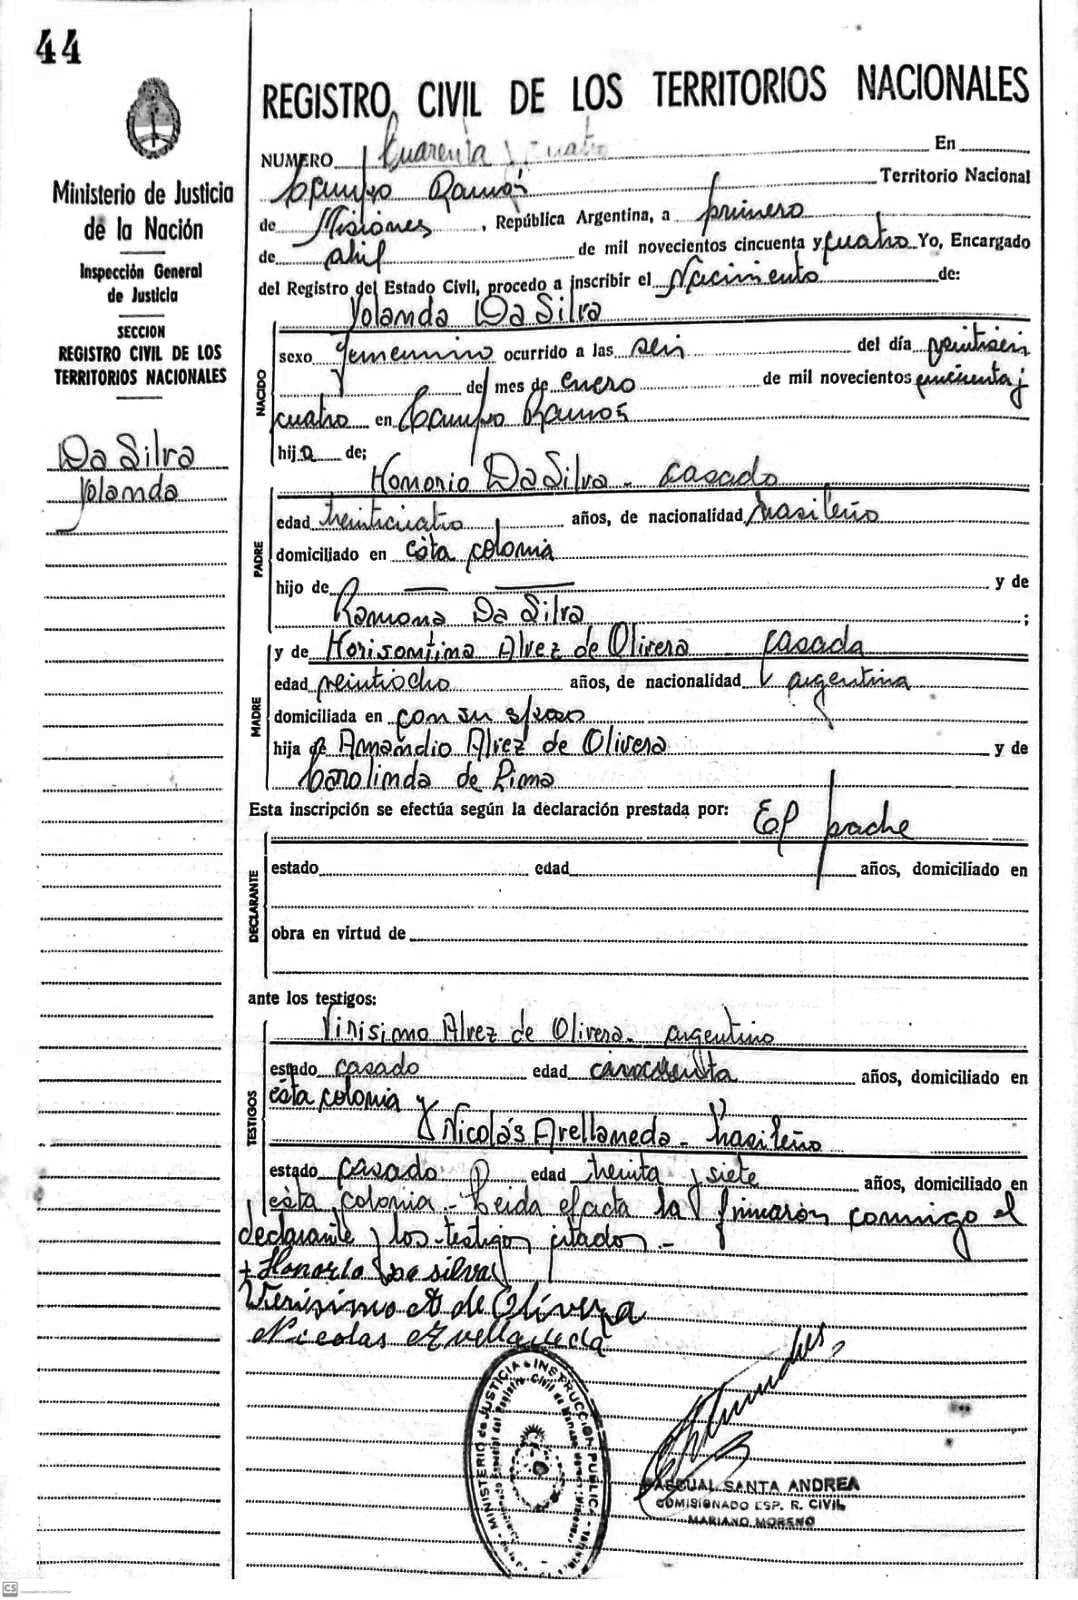 44
REGISTRO CIVIL DE LOS TERRITORIOS NACIONALES
NUMERO Cuarenta y cuatro En
Campo Ramón Territorio Nacional
de Misiones, República Argentina, a primero
de abril de mil novecientos cincuenta y cuatro Yo, Encargado
del Registro del Estado Civil, procedo a inscribir el Nacimiento de:
Yolanda Da Silva
sexo femenino ocurrido a las seis del día veintiseis
del mes de enero de mil novecientos cincuenta y
cuatro en Campo Ramón
hija de;
Honorio Da Silva - casado
edad treinticuatro años, de nacionalidad brasileño
domiciliado en ésta colonia
hijo de — — y de
Ramona Da Silva ;
y de Horisontina Alvez de Olivera casada
edad veintiocho años, de nacionalidad argentina
domiciliada en con su esposo
hija de Amandio Alvez de Olivera y de
Carolinda de Lima
Esta inscripción se efectúa según la declaración prestada por: El padre
estado edad años, domiciliado en
obra en virtud de
ante los testigos:
Virisimo Alvez de Olivera - argentino
estado casado edad cincuenta años, domiciliado en
ésta colonia y
Nicolás Avellaneda - brasileño
estado casado edad treinta y siete años, domiciliado en
ésta colonia - Leida el acta la firmaron conmigo el
declarante y los testigos citados -
+ Honorio Da silva
Verisimo A de Olivera
Nicolas Avellaneda
NACIDO
PADRE
MADRE
DECLARANTE
TESTIGOS
Ministerio de Justicia
de la Nación
Inspección General
de Justicia
SECCION
REGISTRO CIVIL DE LOS
TERRITORIOS NACIONALES
Da Silva
Yolanda
MINISTERIO de JUSTICIA e INSTRUCCION PUBLICA
PASCUAL SANTA ANDREA
COMISIONADO ESP. R. CIVIL
MARIANO MORENO
CS